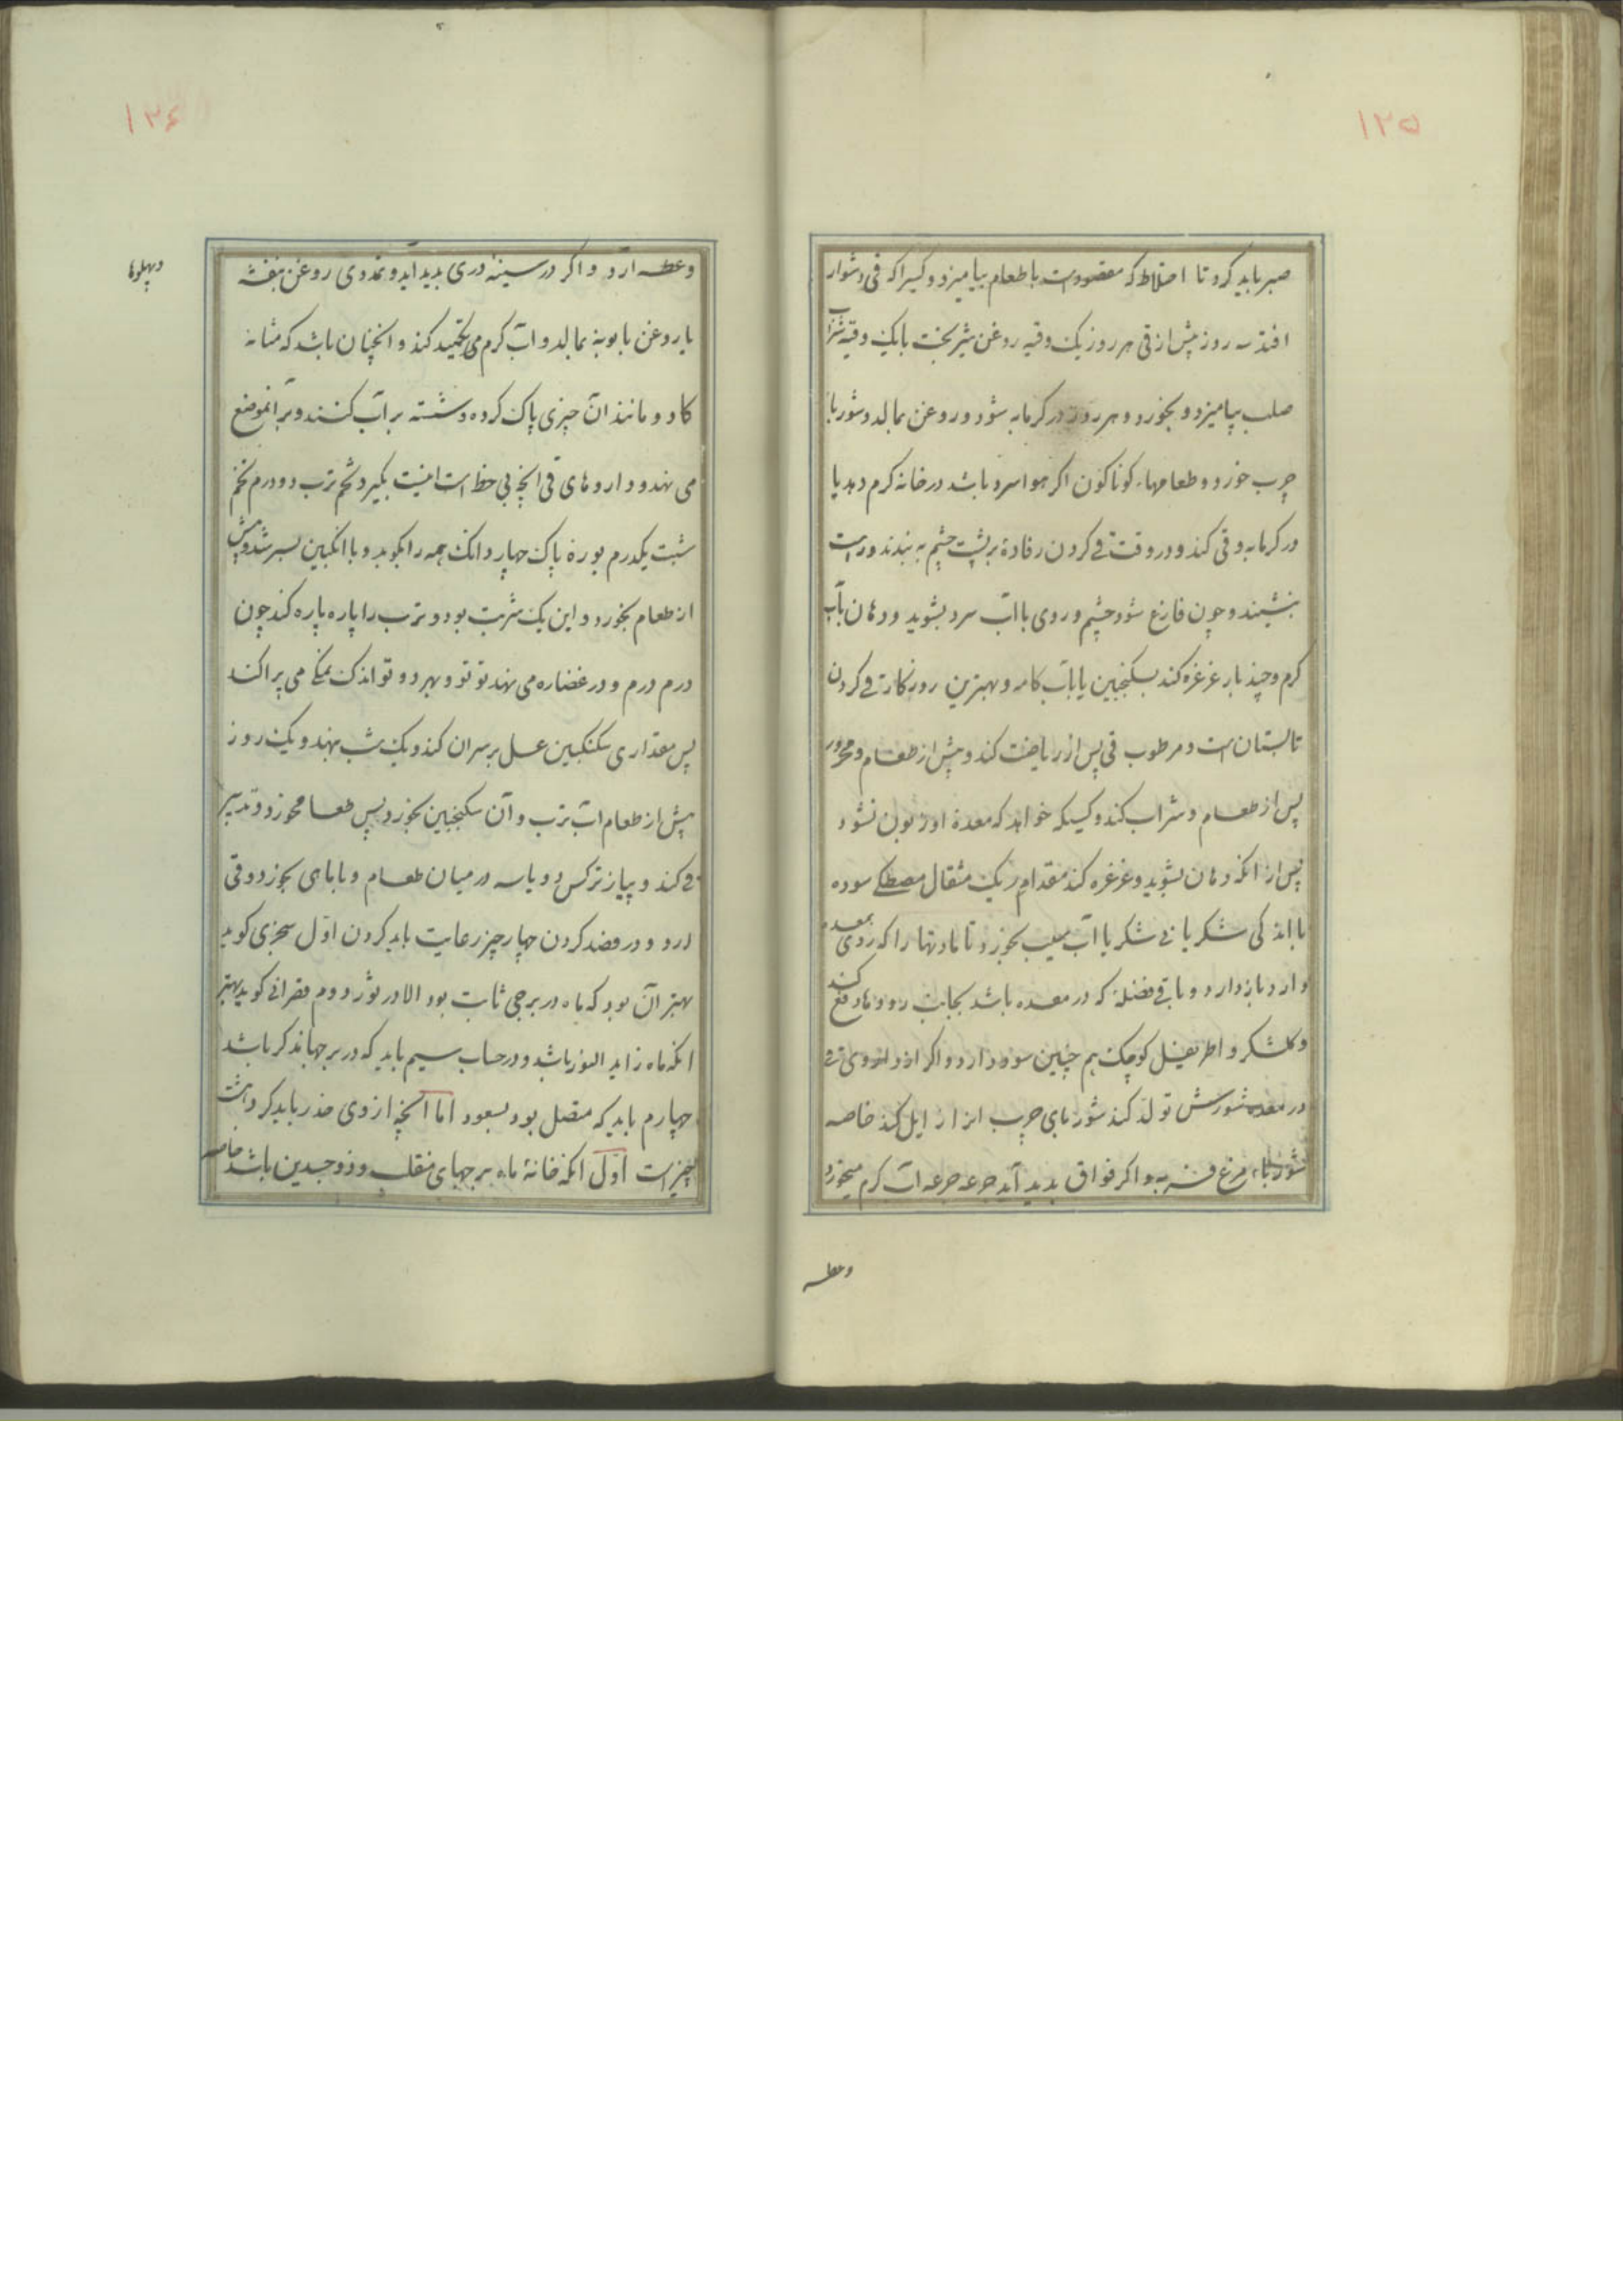 ١٢۵
صبر باید کرد تا اخلاط که مقصودست باطعام بیامیزد و کسیراکه قی دشوار
افتد سه روز پیش از قی هر روز یک وقیه روغن شیربخت بایک وقیه شراب
صلب بیامیزد و بخورد و هر روز در کرمابه شود و روغن بمالد و شوربا
چرب خورد و طعامهاء کوناکون اکر هوا سرد باشد در خانه کرم دهد یا
در کرمابه و قی کند و در وقت قی کردن رفادهٔ بر پشت چشم به بندند و راست
بنشیند و چون فارغ شود چشم و روی با آب سرد بشوید و دهان بآب
کرم و چند بار غرغره کند بسکنجبین یا بآب کامه و بهترین روزکارقی کردن
تابستان است و مرطوب قی پس از ریاضت کند و پیش از طعام و محرور
پس از طعام و شراب کند و کسیکه خواهد که معدهٔ او زبون نشود
پس از انکه دهان بشوید و غرغره کند مقدار یک مثقال مصطکی سوده
با اندکی شکر یا بی شکر با آب سیب بخورد تا مادتها را که روی بمعده
دارد بازدارد و باقی فضلهٔ که در معده باشد بجانب رودها دفع کند
و کلشکر و اطریفیل کوچک هم چنین سود دارد و اکر از داروی قی
در معده شورش تولد کند شوربای چرب انرا زایل کند خاصه
شورباء مرغ فربه و اکر فواق بدید آید جرعه جرعه آب کرم میخورد
وعطسه
١٢۶
وعطسه آرد و اکر در سینه دردی بدید آید و تمددی روغن بنفشه
یا روغن بابونه بمالد و آب کرم می تکمید کند و انچنان باشد که مثانه
کاو و مانند آن چیزی پاک کرده و شسته پر آب کنند و بر آنموضع
می نهند و داروهای قی انچه بی خطر است اینست بکیرد تخم ترب دو درم تخم
شبت یکدرم بوره پاک چهار دانک همه را بکوبد و با انکبین بسرشد و پیش
از طعام بخورد و این یک شربت بود و ترب را پاره پاره کند چون
درم درم و در غضاره می نهند تو تو و بهر دو تو اندک نمکی می پراکند
پس مقداری سکنکبین عسل بر سر ان کند و یک شب بنهد و یک روز
پیش از طعام آب ترب و آن سکنجبین بخورد پس طعام خورد و تدبیر
قی کند و پیاز نرکس دو یا سه در میان طعام و بابای بخورد و قی
ارد و در فصد کردن چهار چیز رعایت باید کردن اوّل سجزی کوید
بهتر آن بود که ماه در برجی ثابت بود الا در ثور دوم قصرانی کوید بهتر
انکه ماه زاید النور باشد و در حساب سیم باید که در برجها نذکر باشد
چهارم باید که متصل بود بسعود اما آنچه از وی حذر باید کرد هشت
چیز است اوّل انکه خانهٔ ماه برجهای منقلب و ذوجسدین باشد خاصه
وپهلوها